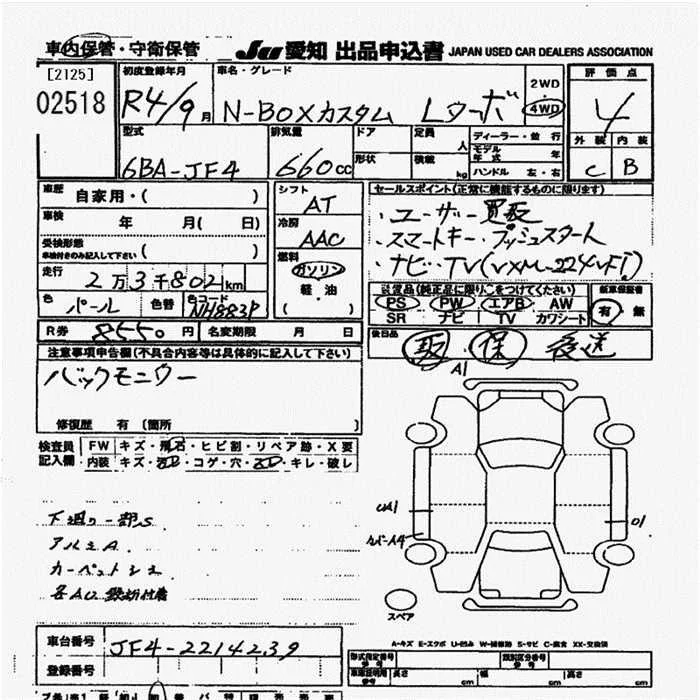 車内保管・守衛保管 JU 愛知 出品申込書 JAPAN USED CAR DEALERS ASSOCIATION
[2125]
02518
初度登録年月
R4/9月
車名・グレード
N-BOXカスタム Lターボ
2WD
・
4WD
評価点
4
外装 内装
C B
型式
6BA-JF4
排気量
660cc
ドア
形状
定員 人
積載 kg
ディーラー・並行
モデル年式 年
ハンドル 左・右
車歴 自家用・( )
車検 年 月( 日)
受検形態
車検付きのみ記入して下さい ( )
走行 2万3千802km
色 パール 色替 色コード NH883P
シフト AT
冷房 AAC
燃料
ガソリン
軽・油
( )
セールスポイント(正常に機能するものに限ります)
・ユーザー買取
・スマートキー・プッシュスタート
・ナビ・TV(VXM-224VFi)
装備品(純正品に限り○をつけてください)
PS PW エアB AW
SR ナビ TV カワシート
新車保証書
有・無
R券 8550円 名変期限 月 日
後日品 取 保 後送
注意事項申告欄(不具合内容等は具体的に記入して下さい)
バックモニター
修復歴 有 [箇所 ]
検査員記入欄
FW キズ・飛石・ヒビ割・リペア跡・X要
内装 キズ・汚レ・コゲ・穴・キレ・破レ
下廻り一部S
アルミA
カーペットシミ
A1
UA1
カバーA4
01
スペア
A-キズ E-エクボ U-凹み W-補修跡 S-サビ C-腐食 XX-交換済
車台番号 JF4-2214239
登録番号
形式指定番号 参考
類別区分番号 参考
車庫証明用 参考 長さ cm 幅 cm 高さ cm